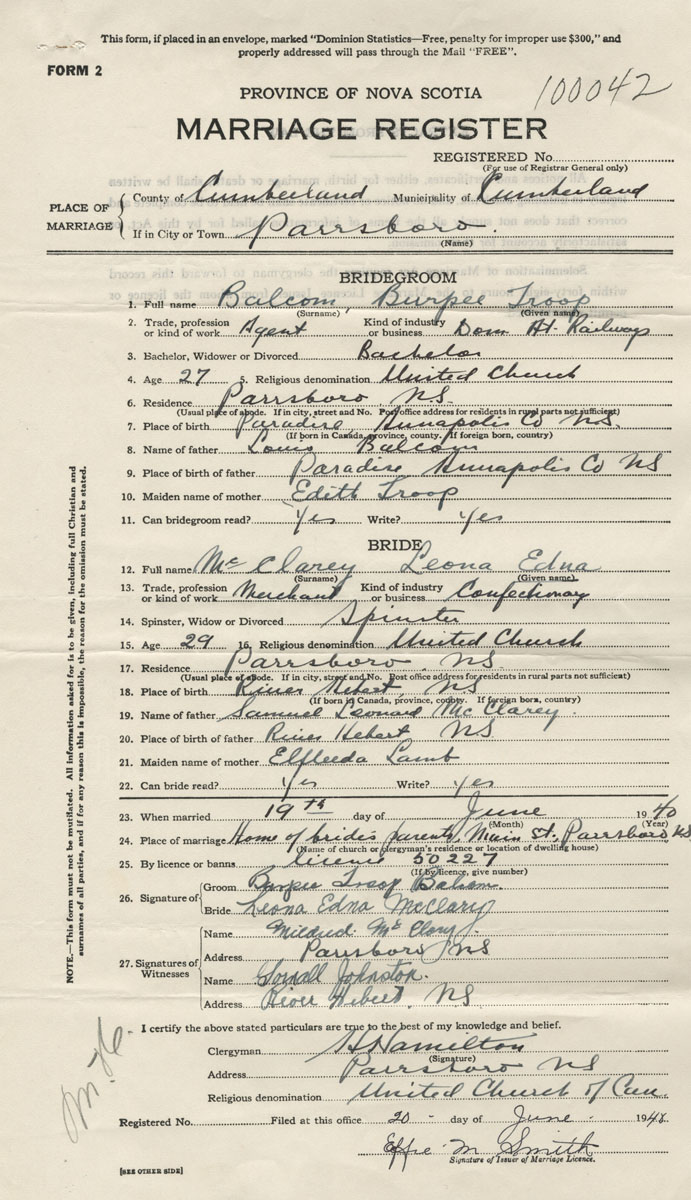 This form, if placed in an envelope, marked "Dominion Statistics—Free, penalty for improper use $300," and
properly addressed will pass through the Mail "FREE".
FORM 2
100042
PROVINCE OF NOVA SCOTIA
MARRIAGE REGISTER
REGISTERED No.
(For use of Registrar General only)
PLACE OF MARRIAGE
County of Cumberland Municipality of Cumberland
If in City or Town Parrsboro
(Name)
BRIDEGROOM
1. Full name Balcom, Burpee Troop
(Surname) (Given name)
2. Trade, profession or kind of work Agent Kind of industry or business Dom. At. Railways
3. Bachelor, Widower or Divorced Bachelor
4. Age 27 5. Religious denomination United Church
6. Residence Parrsboro NS.
(Usual place of abode. If in city, street and No. Post office address for residents in rural parts not sufficient)
7. Place of birth Paradise, Annapolis Co N.S.
(If born in Canada, province, county. If foreign born, country)
8. Name of father Louis Balcom
9. Place of birth of father Paradise Annapolis Co NS
10. Maiden name of mother Edith Troop
11. Can bridegroom read? Yes Write? Yes
BRIDE
12. Full name McClarey Leona Edna
(Surname) (Given name)
13. Trade, profession or kind of work Merchant Kind of industry or business Confectionary
14. Spinster, Widow or Divorced Spinster
15. Age 29 16. Religious denomination United Church
17. Residence Parrsboro NS
(Usual place of abode. If in city, street and No. Post office address for residents in rural parts not sufficient)
18. Place of birth River Hebert, NS
(If born in Canada, province, county. If foreign born, country)
19. Name of father Samuel Leonard McClarey
20. Place of birth of father River Hebert NS
21. Maiden name of mother Elfleeda Lamb
22. Can bride read? Yes Write? Yes
23. When married 19th day of June 1940
(Month) (Year)
24. Place of marriage Home of brides parents, Main St., Parrsboro NS
(Name of church or clergyman's residence or location of dwelling house)
25. By licence or banns licence 50227
(If by licence, give number)
26. Signature of
Groom Burpee Troop Balcom
Bride Leona Edna McClary
27. Signatures of Witnesses
Name Mildred McClary
Address Parrsboro NS
Name Johnston.
Address River Hebert, NS
I certify the above stated particulars are true to the best of my knowledge and belief.
Clergyman Hamilton
(Signature)
Address Parrsboro NS
Religious denomination United Church of Can.
Registered No. Filed at this office 20 - day of June 194
Effie M Smith
Signature of Issuer of Marriage Licence.
[SEE OTHER SIDE]
NOTE.—This form must not be mutilated. All information asked for is to be given, including full Christian and
surnames of all parties, and if for any reason this is impossible, the reason for the omission must be stated.